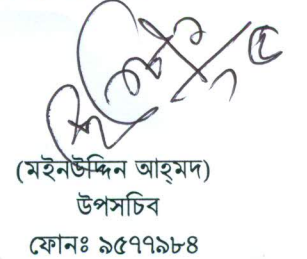 (মইনউদ্দিন আহ্‌মদ)
উপসচিব
ফোনঃ ৯৫৭৭৯৮৪